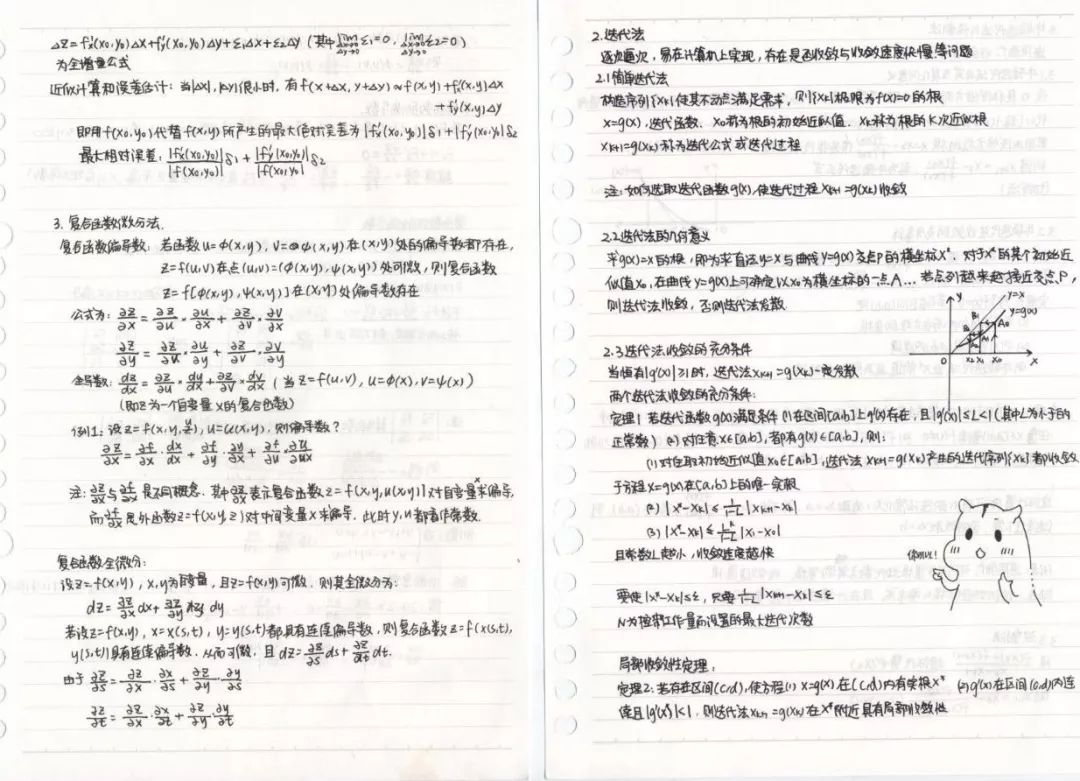 Δz=f'x(x₀,y₀)Δx+f'y(x₀,y₀)Δy+ε₁Δx+ε₂Δy (其中lim Δx→0 Δy→0 ε₁=0, lim Δx→0 Δy→0 ε₂=0)
为全增量公式
近似计算和误差估计: 当|Δx|, |Δy|很小时, 有 f(x+Δx, y+Δy)≈f(x,y)+f'x(x,y)Δx
+f'y(x,y)Δy
即用f(x₀,y₀)代替f(x,y)所产生的最大绝对误差为|f'x(x₀,y₀)|δ₁+|f'y(x₀,y₀)|δ₂
最大相对误差: |f'x(x₀,y₀)|/|f(x₀,y₀)| δ₁ + |f'y(x₀,y₀)|/|f(x₀,y₀)| δ₂
3. 复合函数微分法.
复合函数偏导数: 若函数u=φ(x,y), v=ψ(x,y)在(x,y)处的偏导数都存在,
z=f(u,v)在点(u,v)=(φ(x,y), ψ(x,y))处可微, 则复合函数
z=f[φ(x,y), ψ(x,y)]在(x,y)处偏导数存在
公式为: ∂z/∂x = ∂z/∂u · ∂u/∂x + ∂z/∂v · ∂v/∂x
∂z/∂y = ∂z/∂u · ∂u/∂y + ∂z/∂v · ∂v/∂y
全导数: dz/dx = ∂z/∂u · du/dx + ∂z/∂v · dv/dx (当z=f(u,v), u=φ(x), v=ψ(x))
(即z为一个自变量x的复合函数)
例1: 设z=f(x,y,u), u=u(x,y), 则偏导数?
∂z/∂x = ∂f/∂x · dx/dx + ∂f/∂y · ∂y/∂x + ∂f/∂u · ∂u/∂x
注: ∂z/∂x与∂f/∂x是不同概念. 其中∂z/∂x表示复合函数z=f(x,y,u(x,y))对自变量x求偏导,
而∂f/∂x是外函数z=f(x,y,z)对中间变量x求偏导, 此时y,u都看作常数.
复合函数全微分:
设z=f(x,y), x,y为自变量, 且z=f(x,y)可微, 则其全微分为:
dz = ∂z/∂x dx + ∂z/∂y dy
若设z=f(x,y), x=x(s,t), y=y(s,t)都具有连续偏导数, 则复合函数z=f(x(s,t),
y(s,t))具有连续偏导数, 从而可微, 且 dz=∂z/∂s ds+∂z/∂t dt.
由于 ∂z/∂s = ∂z/∂x · ∂x/∂s + ∂z/∂y · ∂y/∂s
∂z/∂t = ∂z/∂x · ∂x/∂t + ∂z/∂y · ∂y/∂t
2.迭代法
逐次逼近, 易在计算机上实现, 存在是否收敛与收敛速度快慢等问题
2.1 简单迭代法
构造序列{xₖ}使其不动点满足需求, 则{xₖ}极限为f(x)=0的根
x=g(x), 迭代函数. x₀称为根的初始近似值. xₖ称为根的K次近似根
xₖ₊₁=g(xₖ)称为迭代公式或迭代过程
注: 如何选取迭代函数g(x), 使迭代过程xₖ₊₁=g(xₖ)收敛
2.2 迭代法的几何意义
求g(x)=x的根, 即为求直线y=x与曲线y=g(x)交点P的横坐标x*. 对于x*的某个初始近
似值x₀, 在曲线y=g(x)上可确定以x₀为横坐标的一点A... 若点列越来越接近交点P,
则迭代法收敛, 否则迭代法发散.
y
y=x
y=g(x)
B₁
A₀
B₂
A₁
0
x₂ x₁ x₀
x
2.3 迭代法收敛的充分条件
当恒有|g'(x)|≥1时, 迭代法xₖ₊₁=g(xₖ)一定发散
两个迭代法收敛的充分条件:
定理1 若迭代函数g(x)满足条件 (1)在区间[a,b]上g'(x)存在, 且|g'(x)|≤L<1(其中L为小于1的
正常数) (2)对任意x∈[a,b], 都有g(x)∈[a,b], 则:
(1)对任取初始近似值x₀∈[a,b], 迭代法 xₖ₊₁=g(xₖ)产生的迭代序列{xₖ}都收敛
于方程x=g(x)在[a,b]上的唯一实根
(2) |x*-xₖ| ≤ 1/(1-L) |xₖ₊₁-xₖ|
(3) |x*-xₖ| ≤ Lᵏ/(1-L) |x₁-x₀|
且常数L越小, 收敛速度越快
要使|x*-xₖ|≤ε, 只要 1/(1-L) |xₖ₊₁-xₖ|≤ε
N为控制工作量而设置的最大迭代次数
局部收敛性定理:
定理2: 若存在区间(c,d), 使方程(1) x=g(x)在(c,d)内有实根x* (2)g'(x)在区间(c,d)内连
续且|g'(x)|<1, 则迭代法xₖ₊₁=g(xₖ)在x*附近具有局部收敛性